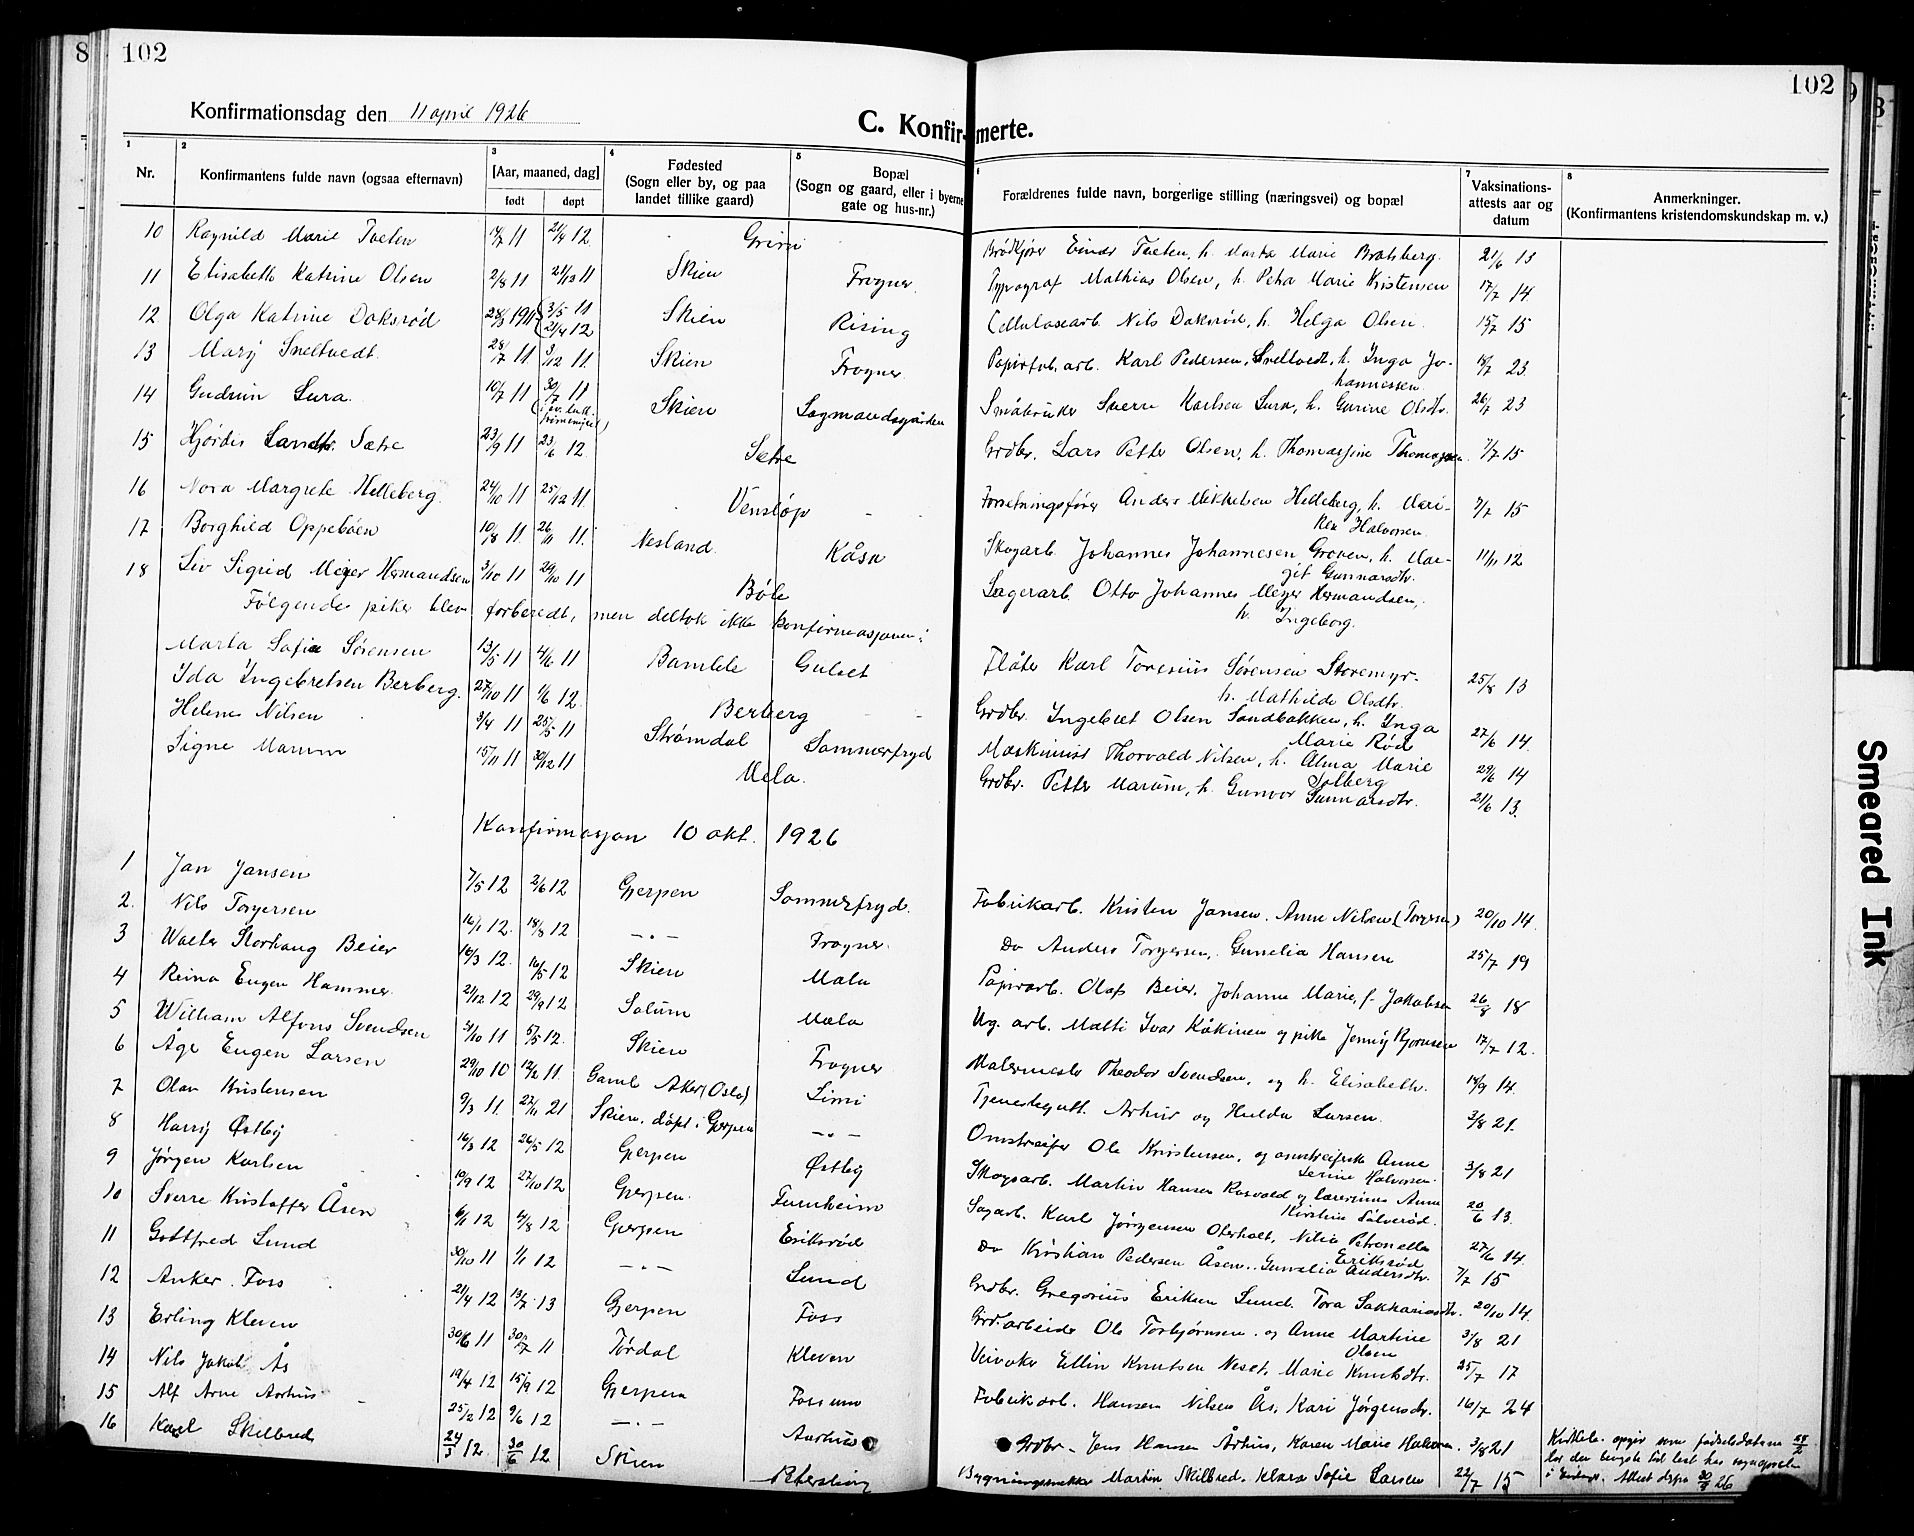 8 102
102
Konfirmationsdag den 11 april 1926
C. Konfirmerte.
1 2 3 4 5 6 7 8
Nr. Konfirmantens fulde navn (ogsaa efternavn) [Aar, maaned, dag] født døpt Fødested (Sogn eller by, og paa landet tillike gaard) Bopæl (Sogn og gaard, eller i byerne gate og hus-nr.) Forældrenes fulde navn, borgerlige stilling (næringsvei) og bopæl Vaksinations-attests aar og datum Anmerkninger. (Konfirmantens kristendomskundskap m. v.)
10 Ragnild Marie Tveten 11 21/4 12 Grini Brødkjører Einar Tveten, h. Marta Marie Bratsberg. 21/6 13
11 Elisabeth Katrine Olsen 2/8 11 11 Skien Frogner Typograf Mathias Olsen, h. Petra Marie Kristensen 17/7 14.
12. Olga Katrine Doksrød 28/3 1911 (3/5 11 (21/4 12 Skien Rising Cellulosearb. Nils Doksrød, h. Helga Olsen. 15/7 15
13 Mary Sneltvedt. 28/7 11 3/12 11. Skien Frogner Papirfab.arb. Karl Pedersen Sneltvedt, h. Inga Jo-
hannessen. 23.
14 Gudrun Lura. 10/7 11 30/7 11 (i ev. luth. ) Skien Sagmandsgården Småbruker Sverre Karlsen Lura, h. Gurine Olsdtr. 26/7 23
15 Hjørdis Larsdtr. Sætre 23/9 11 23/6 12 Sætre Grdbr. Lars Petter Olsen, h. Thomassine 7/7 15
16 Nora Margrete Helleberg. 24/10 11 25/12 11. Venstøp Forretningsfører Anders Mikkelsen Helleberg, h. Mari-
ken Halvorsen. 7/7 15
17 Borghild Oppebøen 10/8 11. 26/11 11. Nesland. Kåsa Skogarb. Johannes Johannesen Groven, h. Mar-
git Gunnarsdtr. 11/11 12
18 Liv Sigrid Meyer Hermandsen 3/10 11 29/10 11 Bøle Lagerarb. Otto Johannes Meyer Hermandsen,
h. Ingeborg.
Følgende piker blev forberedt, men deltok ikke konfirmasjonen:
Marta Sofie Sørensen 13/5 11 4/6 11 Bamble Gulset Fløter Karl Toresius Sørensen Storemyr.
h. Mathilde Olsdtr. 25/8 13
Ida Ingebretsen Berberg. 27/10 11 1/6 12. Berberg Grdbr. Ingebret Olsen Sandbakken, h. Inga
Marie Rød 27/6 14.
Helene Nilsen 3/4 11 25/5 11 Strømdal Sommerfryd Maskinist Thorvald Nilsen, h. Alma Marie
Solberg 29/6 14
Signe Marum 15/11 11 30/12 11 Mela. Grdbr. Petter Marum, h. Gunvor Gunnarsdtr. 21/6 13.
Konfirmasjon 10 okt. 1926
1 Jan Jansen 7/5 12 2/6 12 Gjerpen Sommerfryd. Fabrikarb. Kristen Jansen. Anne Nilsen (Torgersen) 20/10 14.
2. Nils Torgersen 16/1 12. 18/8 12 —.— Frogner. Do Anders Torgersen, Gunelia Hansen 25/7 19
3 Walter Storhaug Beier 10/3 12. 16/5 12 Skien Mæla Papirarb. Olaf Beier, Johanne Marie, f. Jakobsen 26/8 18
4 Reino Eugen Hammer. 21/12 12 29/9 12 Solum Mæla Ug. arb. Matti Ivar Kåkinen og pike Jenny Bjørnsen 17/7 12.
5 William Alfons Svendsen 31/10 11 5/5 12. Skien Frogner Malermester Theodor Svendsen, og h. Elisabeth. 14/9 14.
6 Åge Eugen Larsen 29/10 10 12/2 11. Gaml Aker (Oslo) Limi Tjenestegutt. Arthur og Hulda Larsen. 3/8 21.
7 Olav Kristensen 9/3 11. 27/11 21 Skien, døpt i Gjerpen —.— Omstreifer Ole Kristensen, og omstreiferske Anne
Serine Halvorsen. 3/8 21
8 Harry Østby 16/3 12 26/5 12 Gjerpen Østby Skogsarb. Martin Hansen Rosvald og lærerinne Anna
Kirstine Sølverød. 20/6 13.
9 Jørgen Karlsen 10/9 12 27/10 12 Gjerpen. Furuheim Sagarb. Karl Jørgensen Oterholt, Nilia Petronella
Eriksrød 27/6 14.
10 Sverre Kristoffer Åsen 6/1 12 4/8 12 Gjerpen Eriksrød Do Kristian Pedersen Åsen. Gunelia Andersdtr. 7/7 15
11 Gottfred Lund 30/10 11 1/1 12 —.— Lund Grdbr. Gregorius Eriksen Lund. Tora Sakkariasdtr. 20/10 14.
12 Anker. Foss 21/4 12 13/7 13 Gjerpen Foss Grd.arbeider Ole Torbjørnsen. og Anne Martine
Olsen 3/8 21
13 Erling Kleven 30/6 11 30/7 11 Tørdal Kleven Veivokter Ellin Knutsen Neset, Marie Knutsdtr. 25/7 17
14 Nils Jakob Ås 19/4 12 15/9 12 Gjerpen Fossum Fabrikarb. Hansen Nilsen Ås, Kari Jørgensdtr. 16/7 24
15 Alf Arne Aarhus 25/2 12 9/6 12 —.— Aarhus Grdbr. Jens Hansen Århus, Karen Marie Halvorsen. 3/8 21
16 Karl Skilbred 24/3 12. 30/6 12 Skien Petersborg Bygningssnekker Martin Skilbred. Klara Sofie Larsen 22/7 15
Kirkeb. opgir som fødselsdatum 28/2
Attest 26
Smeared Ink